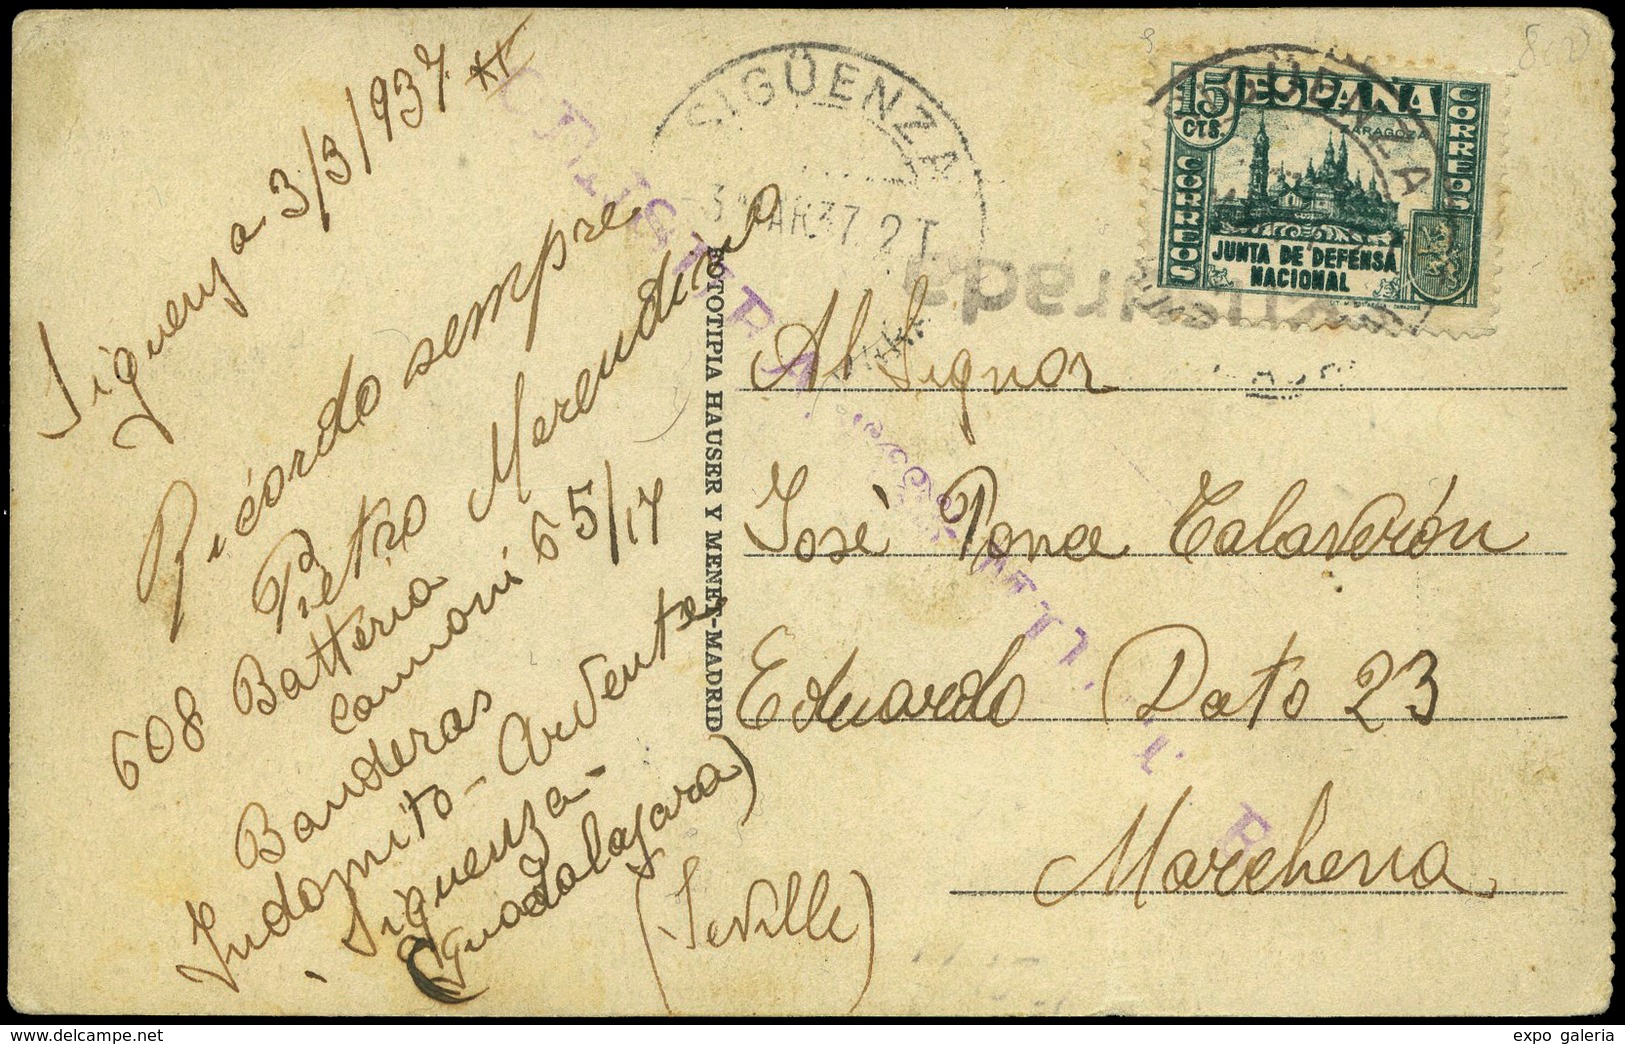 Siguenza 3/3/1937
Ricordo sempre
Pietro Merendino
608 Batteria
cannoni 65/17
Banderas
Indomito - Ardente
Siguenza -
(Guadalajara)
SIGÜENZA
3 MAR 37. 2T
15 CTS.
ESPAÑA
CORREOS
CORREOS
ZARAGOZA
JUNTA DE DEFENSA
NACIONAL
SIGÜENZA
FOTOTIPIA HAUSER Y MENET-MADRID
Al Signor
José Ponce Talaverón
Eduardo Dato 23
Marchena
(Seville)
expo galeria